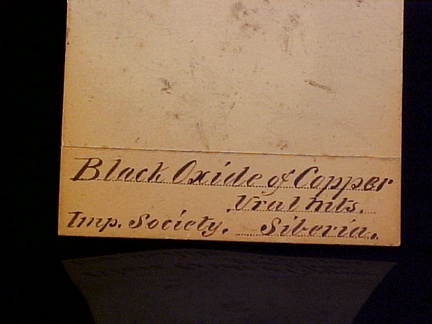 Black Oxide of Copper
Ural Mts.
Imp. Society. Siberia.